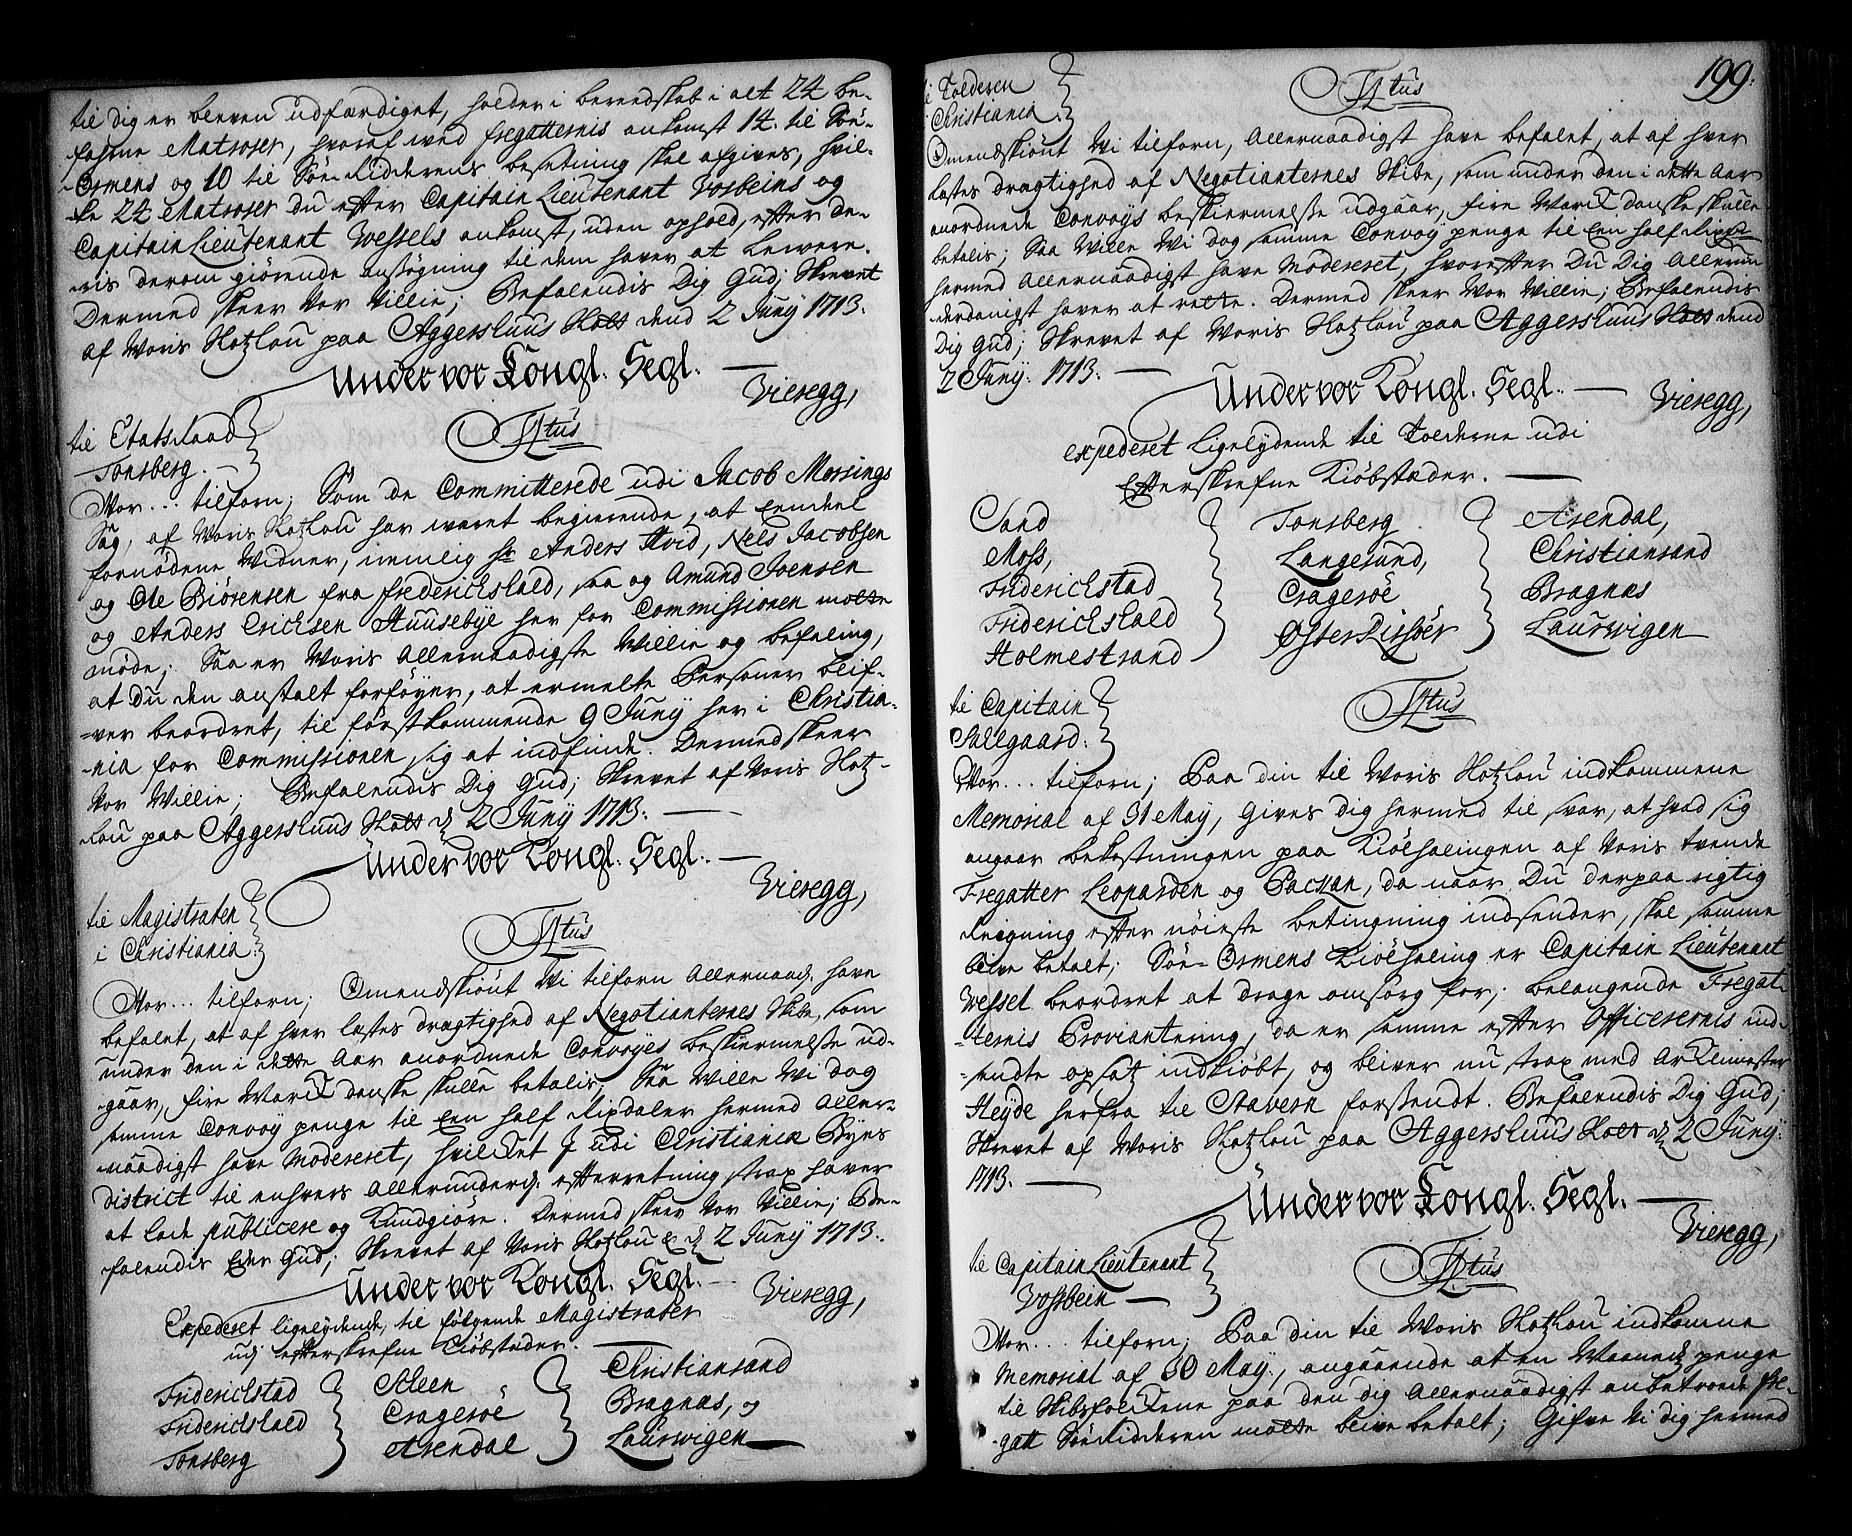 til dig er bleven udfærdiget, holder i beredskab i alt 24 be-
farne Matroser, hvoraf ved fregatternis ankomst 14. til Søe-
Ormens og 10 til Søe-Ridderens besetning skal afgives, hvil-
ke 24 Matroser du efter Capitain Lieutenant Vosbeins og
Capitain Lieutenant Wessels ankomst, uden ophold, efter de-
ris derom giørende ansøgning til dem haver at levere.
Dermed skeer Vor Villie; Befalendis Dig Gud; Skrevet
af Voris Slotzlou paa Aggershuus Slott dend 2 Juny 1713.
Under vor Kongl. Segl.
Vieregg,
til Etatsraad
Tonsberg.
Titus
Vor... tilforn; Som de Committerede udi Jacob Morsings
Sag, af Voris Slotzlou har været begierende, at Eendeel
fornødene Vidner, nemlig Hr Anders Hvid, Nels Jacobsen
og Ole Biørensen fra Frederichshald, saa og Amund Joensen
og Anders Erichsen Huusebye her for Commissionen motte
møde; Saa er Voris Allernaadigste Villie og befaling,
at Du den anstalt forføyer, at ermelte Personer blif-
-ver beordret, til førstkommende 9 Juny her i Christia-
-nia for Commissionen sig at indfinde. Dermed skeer
Vor Villie; Befalendis Dig Gud; Skrevet af Voris Slotz-
lou paa Aggershuus Slott d. 2 Juny 1713.
Under vor Kongl. Segl.
Vieregg,
til Magistraten
i Christiania.
Titus
Vor... tilforn; Omendskiønt Vi tilforn Allernaad. have
befalet, at af hver læstes drægtighed af Negotianternes Skibe, som
under den i dette Aar anordnede Convoyes beskiermelse ud-
gaar, fire Mark danske skulle betalis, Saa Wille Wi dog
samme Convoy penge til Een half Rixdaler hermed Aller-
naadigst have Modereret, hvilket I udi Christianiæ Byes
district til enhvers Allerunderd. efterretning strax haver
at lade publicere og Kundgiøre. Dermed skeer Vor Villie; Be-
falendis Eder Gud; Skrevet af Voris Slotzlou & d. 2 Juny 1713.
Under vor Kongl. Segl.
Vieregg,
Expederet ligelydende, til følgende Magistrater
udj efterskrefne Kiøbstæder.
Friderichstad
Friderichshald
Tonsberg
Skeen
Cragerøe
Arendal
Christiansand
Bragnæs, og
Laurwigen
199.
til Tolderen
Christiania.
Titus
Omendskiønt Vi tilforn, Allernaadigst have befalet, at af hver
læstes drægtighed af Negotianternes Skibe, som under den i dette Aar
anordnede Convoys beskiermelse udgaar, fire Mark danske skulle
betalis; Saa Wille Wi dog samme Convoy penge til Een half Rixdr
hermed Allernaadigst have Modereret, hvorefter Du Dig Allerun
derdanigst haver at rette. Dermed skeer Vor Villie; Befalendis
Dig Gud; Skrevet af Voris Slotzlou paa Aggershuus Slott dend
2 Juny. 1713.
Under vor Kongl. Segl.
Vieregg,
expederet ligelydende til Tolderne udi
Efterskrefne Kiøbstæder.
Sand
Moss,
Friderichstad
Friderichshald
Holmestrand
Tonsberg
Langesund,
Cragerøe
Øster Riisøer
Arendal,
Christiansand
Bragnæs
Laurwigen
til Capitain
Salegaard.
Titus
Vor... tilforn; Paa din til Voris Slotzlou indkommene
Memorial af 31 May, Gives Dig hermed til svar, at hvad sig
angaar bekostningen paa Kiølhalingen af Voris tvende
Fregatter Leoparden og Packan, da naar Du derpaa rigtig
Reigning efter nøieste betingning indsender, skal samme
blive betalt; Søe-Ormens Kiølhaling er Capitain Lieutenant
Wessel beordret at drage omsorg for; belangende Fregat-
-ternis Proviantering, da er samme efter Officerernis ind-
-sendte opsatz indkiøbt, og bliver nu strax med Arklimester
Heyde herfra til Stavern forsendt. Befalendis Dig Gud;
Skrevet af Voris Slotzlou paa Aggershuus Slott d. 2 Juny.
1713.
Under vor Kongl. Segl.
Vieregg,
til Capitain Lieutenant
Vossbein
Titus
Vor... tilforn; Paa din til Voris Slotzlou indkomne
Memorial af 30 May, angaaende at en Maaneds penge
til Skibsfolckene paa den dig Allernaadigst anbetroede fre-
gatt Søe Ridderen motte blive betalt; Gifve Vi dig hermed